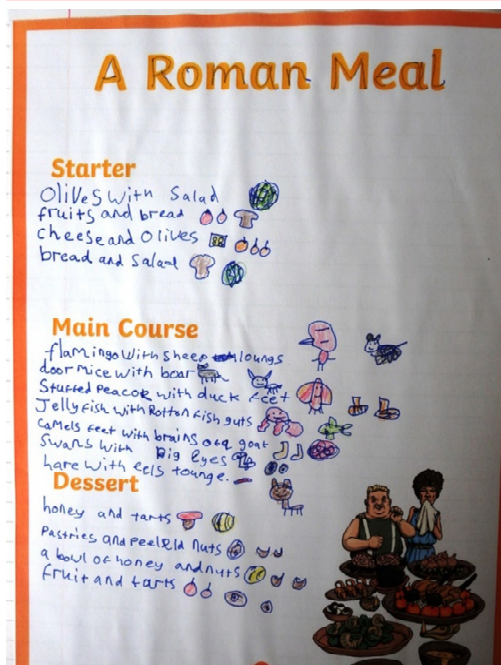 A Roman Meal
Starter
Olives with Salad
fruits and bread
cheese and Olives
bread and Salad
Main Course
flamingo with sheep loungs
door mice with boar
Stuffed Peacok with duck feet
Jellyfish with Rotton fish guts
camels feet with brains of a goat
Swans with Pig Eyes
hare with eels tounge.
Dessert
honey and tarts
Pastries and peeleld nuts
a bowl of honey and nuts
fruit and tarts